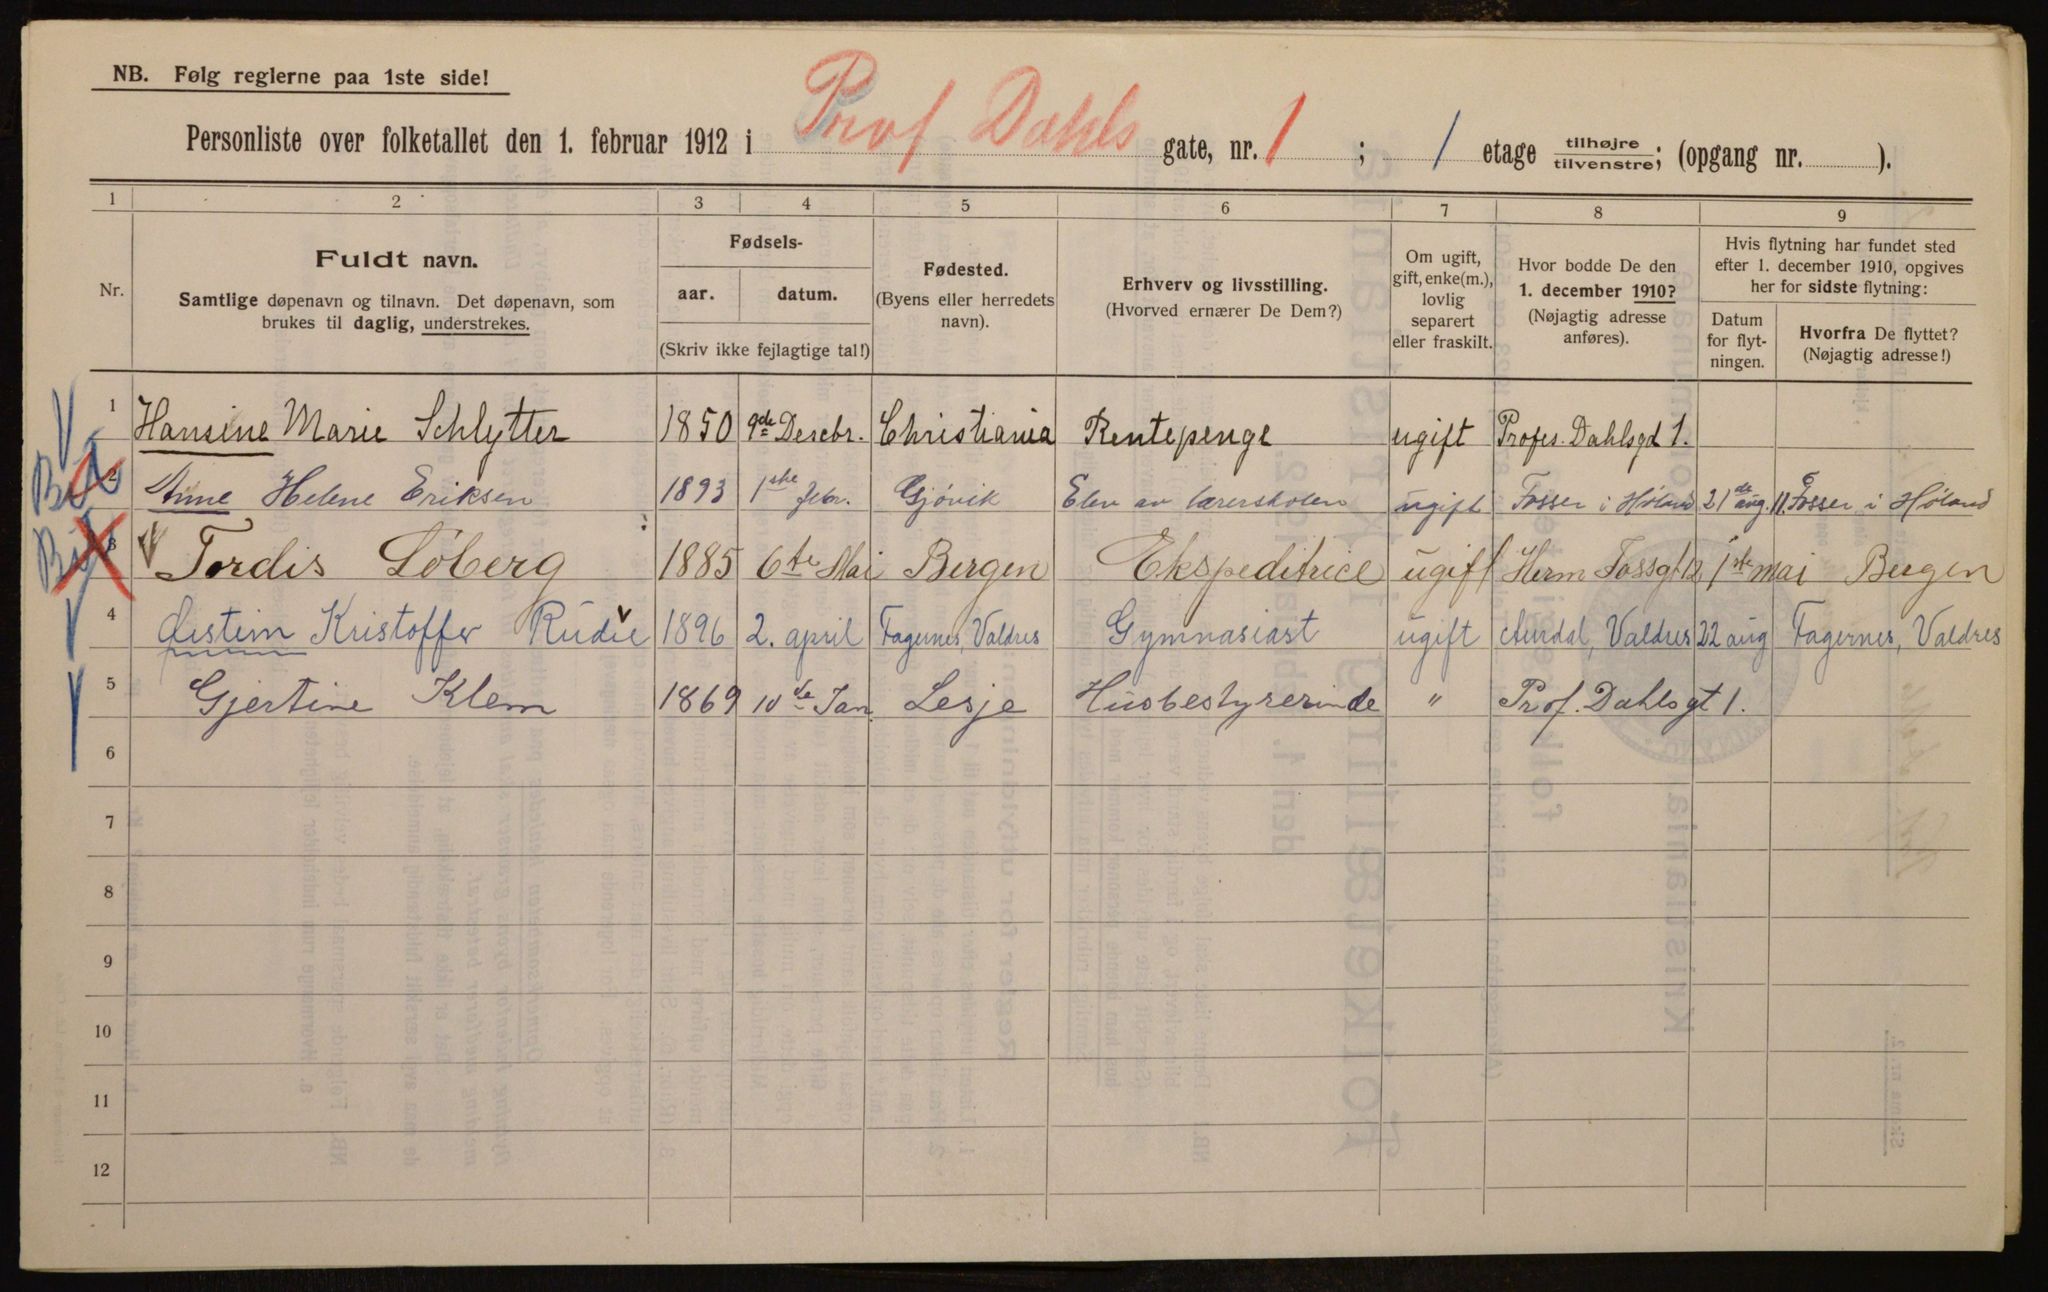 NB. Følg reglerne paa 1ste side!
Personliste over folketallet den 1. februar 1912 i Prof Dahls gate, nr. 1 ; 1 etage tilhøjre/tilvenstre; (opgang nr. ).
1 2 3 4 5 6 7 8 9
Nr.
Fuldt navn.
Samtlige døpenavn og tilnavn. Det døpenavn, som
brukes til daglig, understrekes.
Fødsels-
aar. datum.
(Skriv ikke fejlagtige tal!)
Fødested.
(Byens eller herredets
navn).
Erhverv og livsstilling.
(Hvorved ernærer De Dem?)
Om ugift,
gift, enke(m.),
lovlig
separert
eller fraskilt.
Hvor bodde De den
1. december 1910?
(Nøjagtig adresse
anføres).
Hvis flytning har fundet sted
efter 1. december 1910, opgives
her for sidste flytning:
Datum
for flyt-
ningen.
Hvorfra De flyttet?
(Nøjagtig adresse!)
1 Hansine Marie Schlytter 1850 9de Desebr. Christiania Rentepenge ugift Profes. Dahlsgd 1.
2 Anne Helene Eriksen 1893 1ste febr. Gjövik Elev av lærerskolen ugift Fosser i Høland 21de aug. 11. Fosser i Høland
3 Tordis Løberg 1885 6te Mai Bergen Ekspeditrice ugift Herm Fossgt 12 1ste mai Bergen
4 Øistein Kristoffer Rudie 1896 2. april Fagernes, Valdres Gymnasiast ugift Aurdal, Valdres 22 aug Fagernes, Valdres
5 Gjertine Klem 1869 10de Jan. Lesje Husbestyrerinde " Prof. Dahlsgt 1.
6
7
8
9
10
11
12